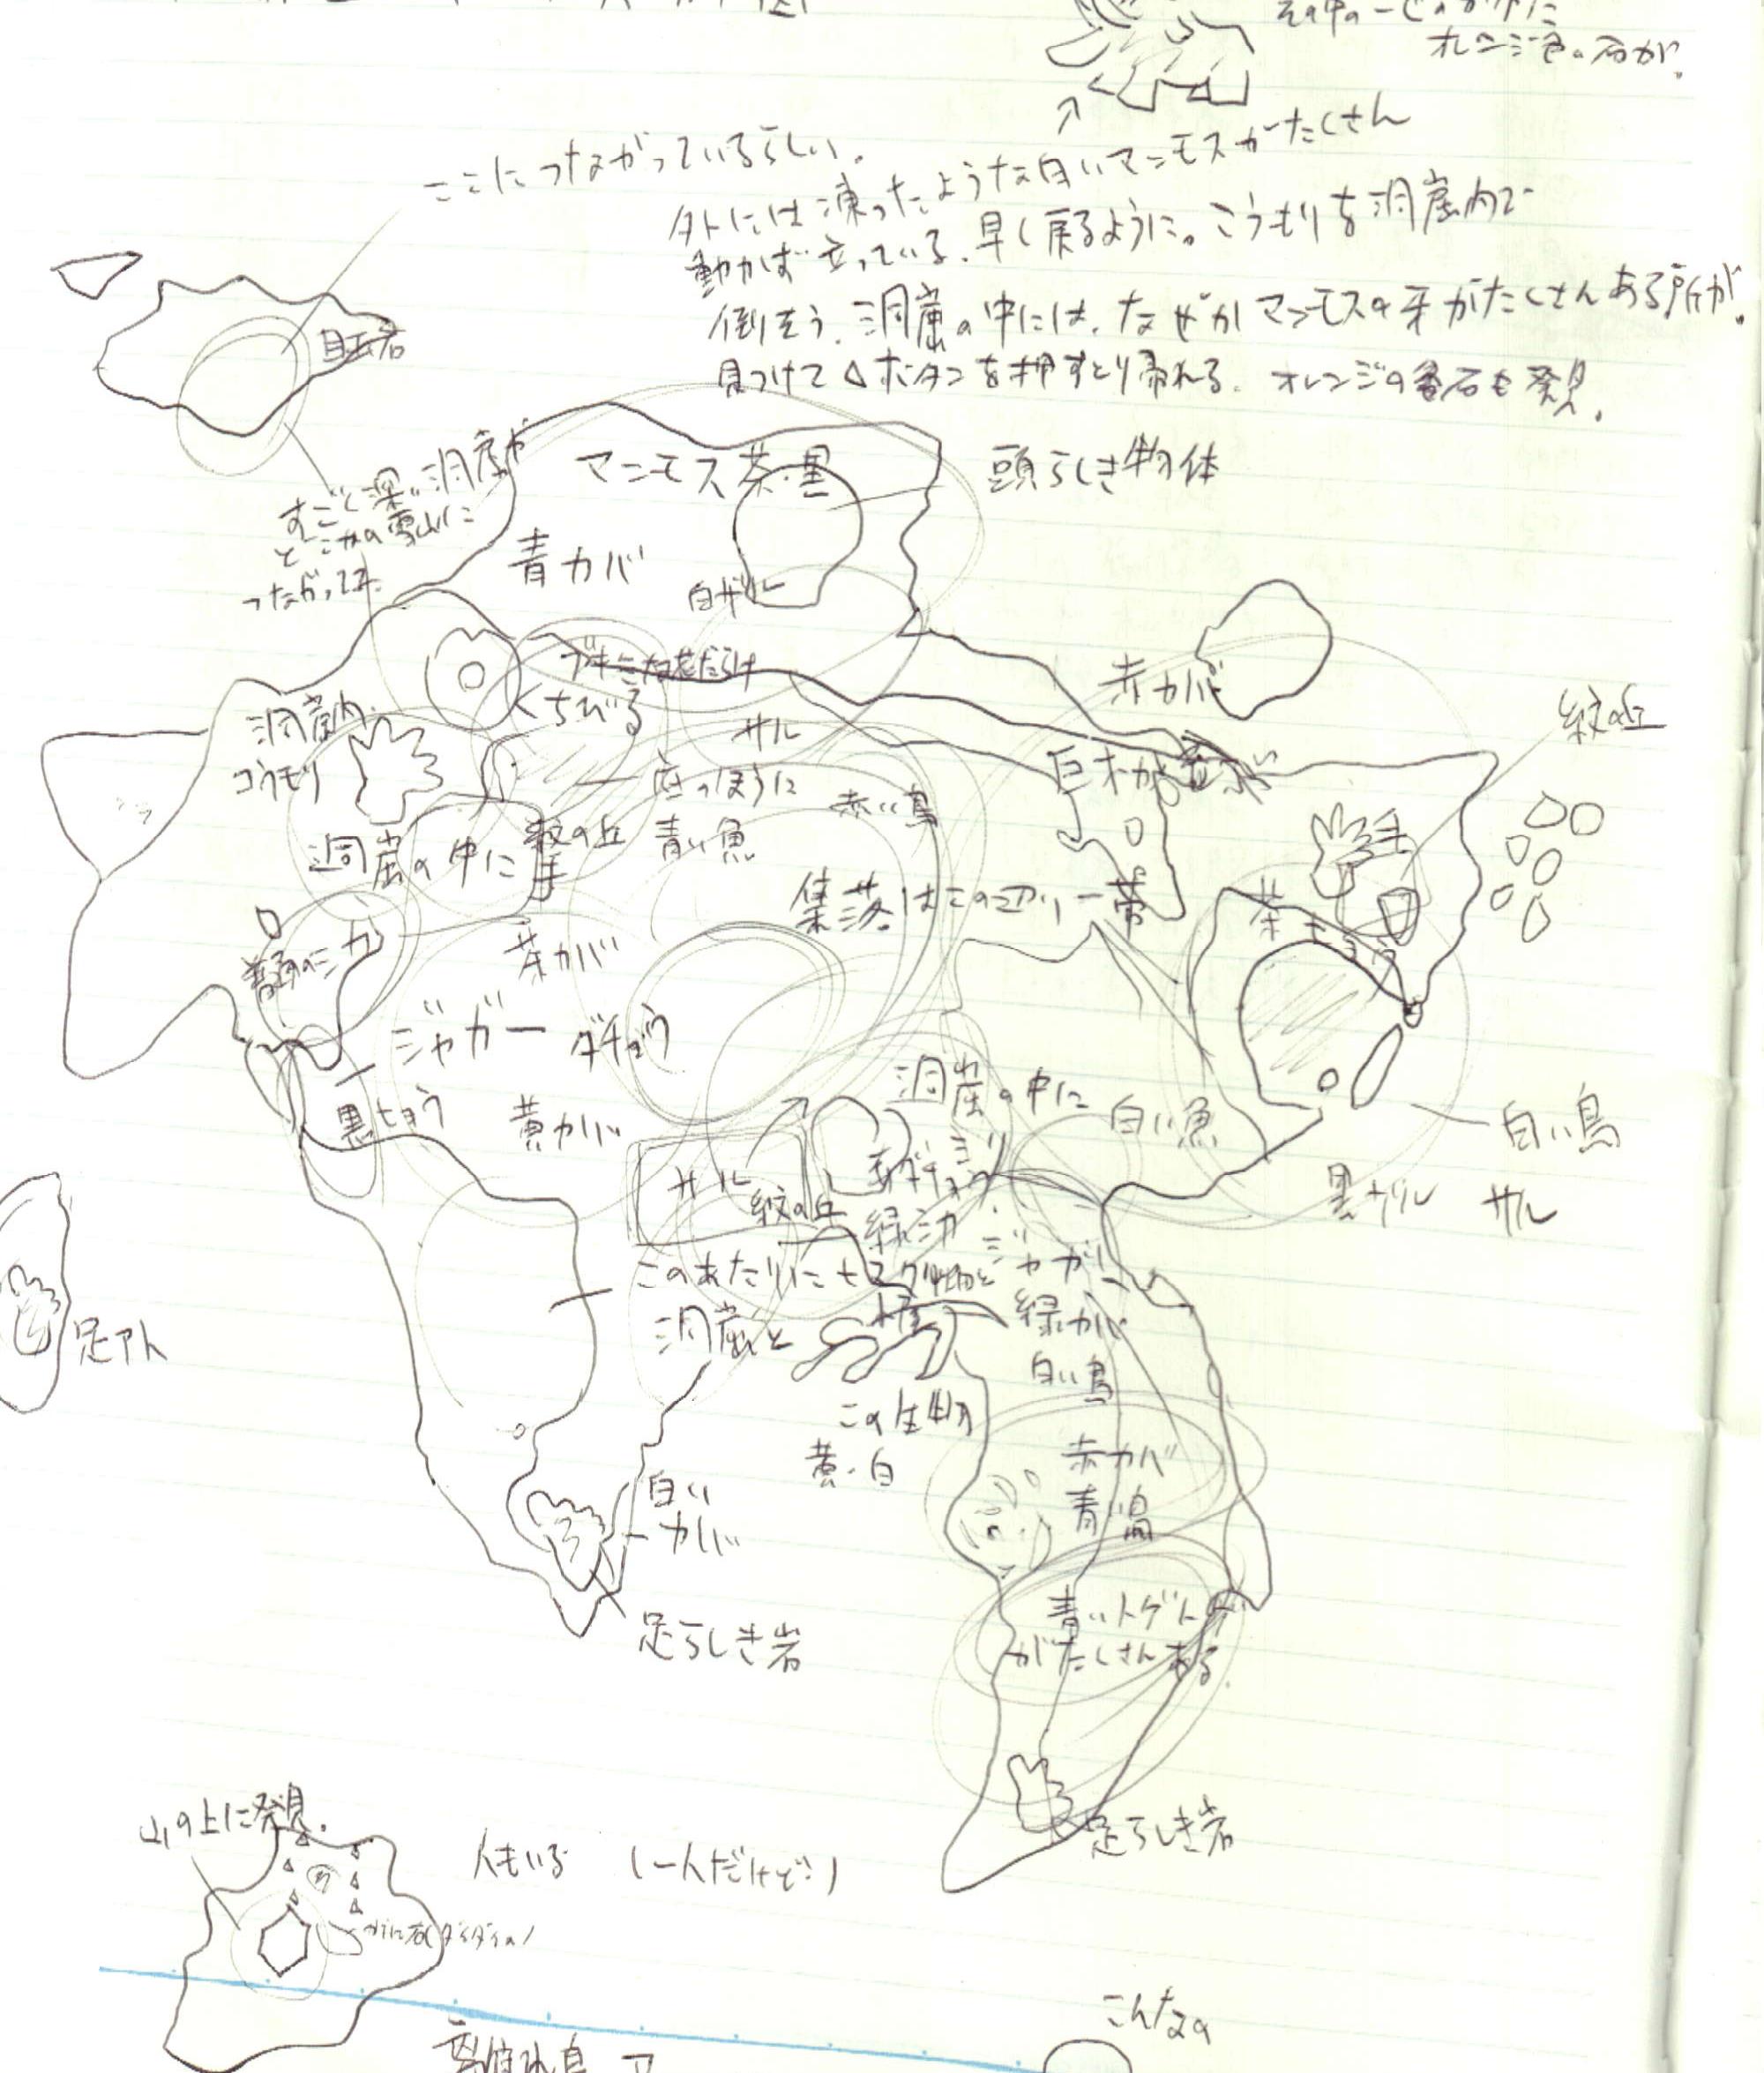 オレンジ色の石が。
ここにつながっているらしい。
外には凍ったような白いマンモスがたくさん
動かず立っている。早く戻るように。こうもりを洞窟内で
倒そう。洞窟の中には、なぜかマンモスの牙がたくさんある所が。
見つけて△ボタンを押すとり帰れる。オレンジの番石も発見。
マンモス茶・黒
頭らしき物体
すごく深い洞窟が
どこかの雪山に
つながってる。
青カバ
白ザル
ブキミな花だらけ
くちびる
赤カバ
紋の丘
洞窟内
コウモリ
サル
巨木が並ぶ
底のほうに
青い魚
赤い鳥
紋の丘
手
洞窟の中に
集落はこの辺り一帯
手
茶ヒョウ
普通のシカ
茶カバ
ジャガー
ダチョウ
黒ヒョウ
黄カバ
洞窟の中に
白い魚
白い鳥
黒ザル サル
サル
紋の丘
緑シカ
ジャガー
このあたりに
洞窟と
緑カバ
白い鳥
足アト
この生物
黄・白
赤カバ
青い鳥
白い
カバ
足らしき岩
青いトゲトゲ
がたくさんある。
足らしき岩
山の上に発見。
人もいる (一人だけど)
こんなの